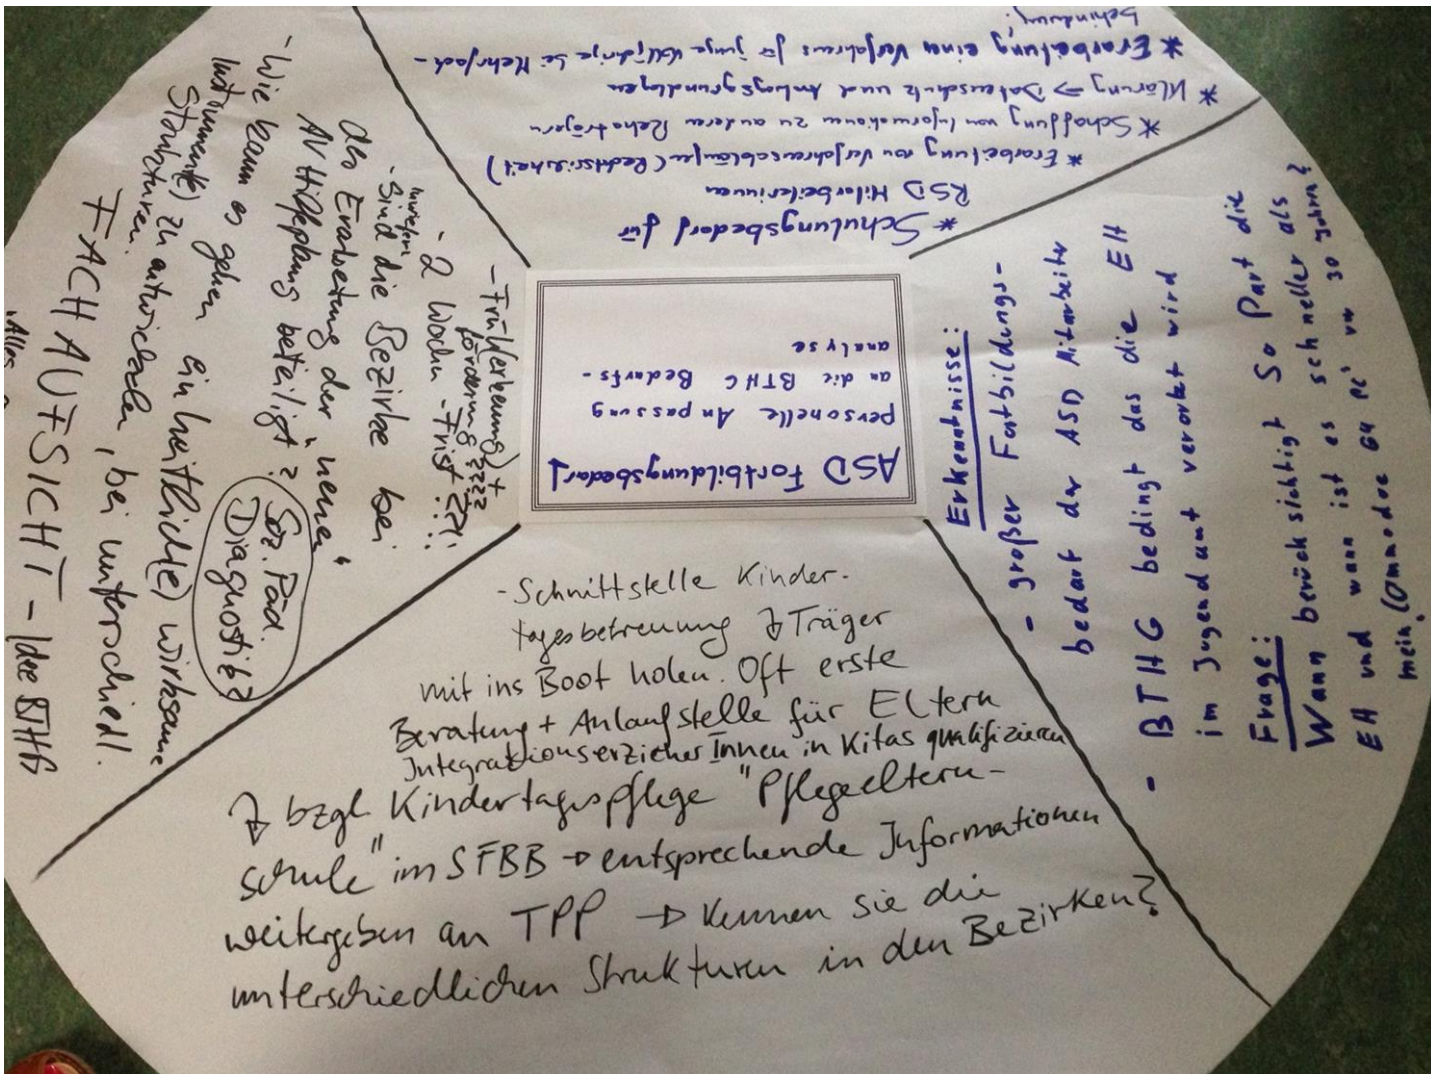 ASD Fortbildungsbedarf
personelle Anpassung
an die BTHG Bedarfs-
analyse
* Schulungsbedarf für
RSD Mitarbeiterinnen
* Erarbeitung von Verfahrensabläufen (Rechtssicherheit)
* Schaffung von Informationen zu anderen Rehaträgern
* Klärung => Datenschutz und Antragsgrundlagen
* Erarbeitung eines Verfahrens für junge Volljährige bei Mehrfach-
behinderung!
Erkenntnisse:
- großer Fortbildungs-
bedarf der ASD Mitarbeiter
- BTHG bedingt das die EH
im Jugendamt verortet wird
Frage:
Wann berücksichtigt So Part die
EH und wann ist es schneller als
mein (Omodoe 64 PC' von 30 Jahren?
- Schnittstelle Kinder-
tagesbetreuung → Träger
mit ins Boot holen. Oft erste
Beratung + Anlaufstelle für Eltern
IntegrationserzieherInnen in Kitas qualifizieren
→ bzgl. Kindertagespflege "Pflegeeltern-
schule" im SFBB → entsprechende Informationen
weitergeben an TPP → kennen sie die
unterschiedlichen Strukturen in den Bezirken?
- Früherkennung +
förderung ????
- 2 Wochen - Frist ??!!
- Inwiefern
sind die Bezirke bei
der Erarbeitung der "neuen"
AV Hilfeplanung beteiligt?
Soz. Päd.
Diagnostik?
- Wie kann es gehen ein heitliche(e) wirksame
Instrument(e) zu entwickeln, bei unterschiedl.
Strukturen.
FACHAUFSICHT - Idee BTHG
Alles